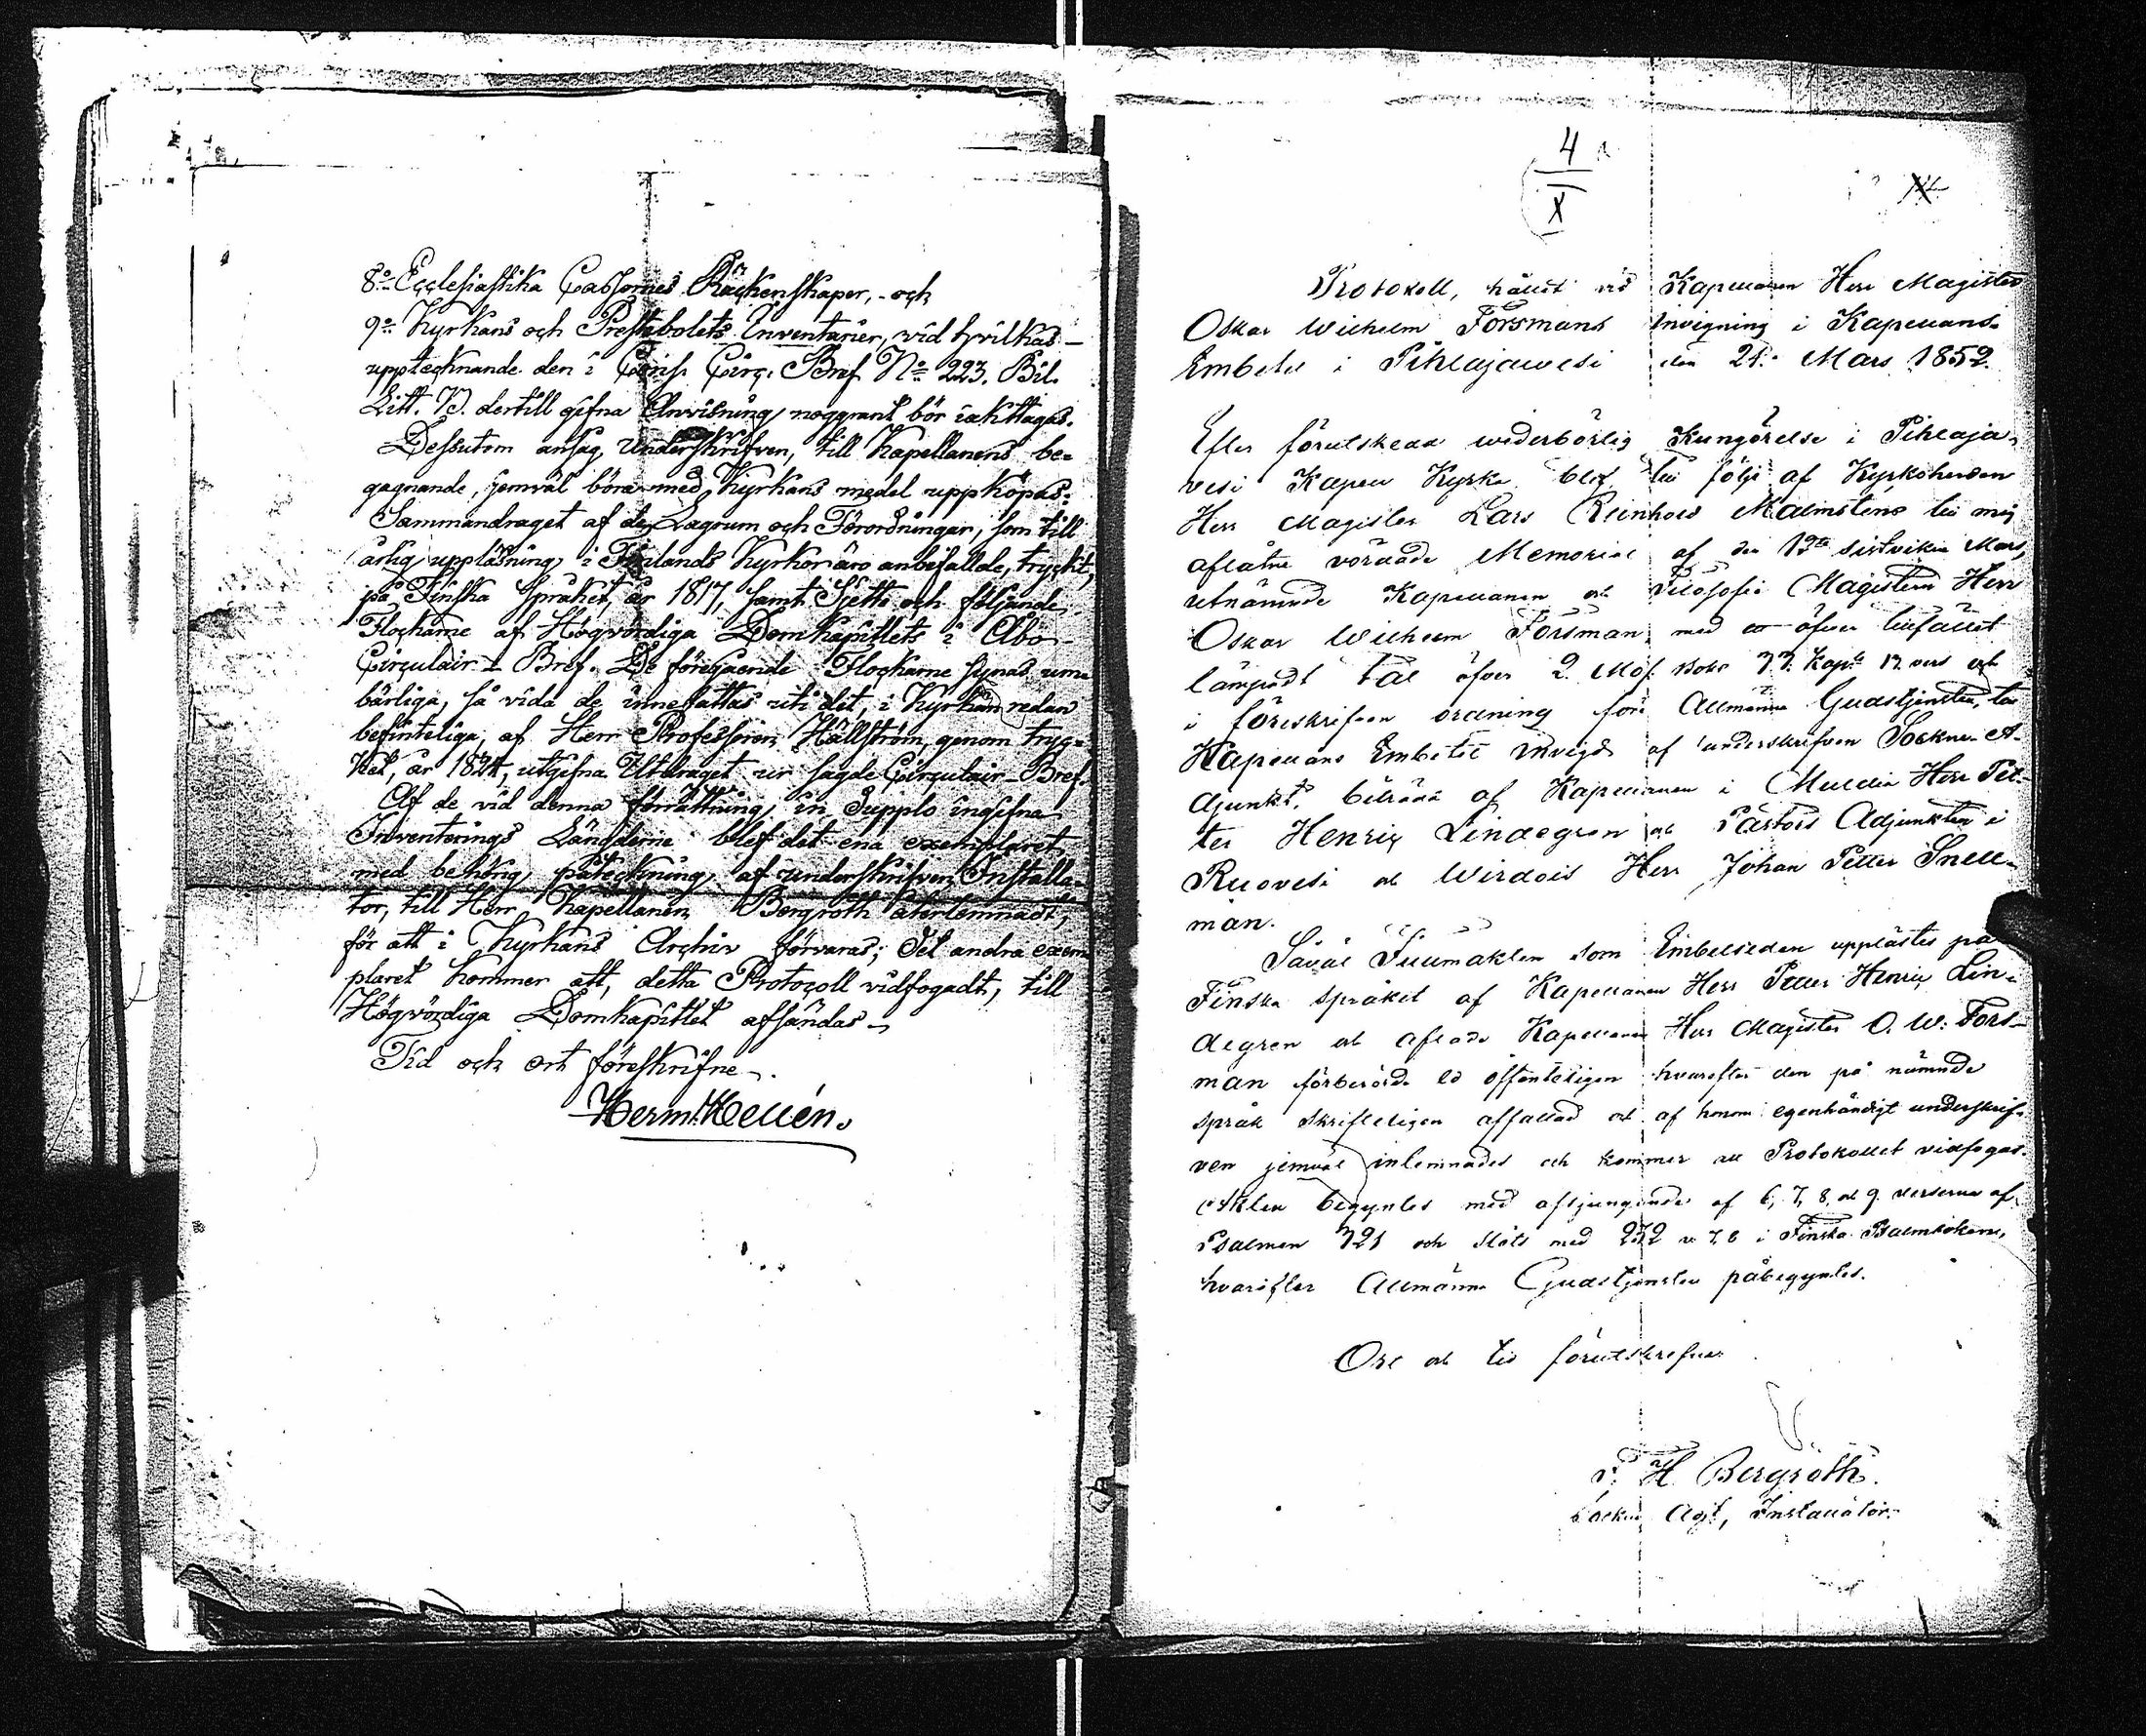 8:o Ecclesiastika Cassornes Räckenskaper, - och
9:o Kyrkans och Prestebolets Inventarier, vid hvilkas
upptecknande den i Cons. Circ. Bref N:o 223. Bil.
Litt. D. dertill gifna Anvisning noggrant bör iakttagas.
Dessutom ansåg, Underskrifven, till Kapellanens be-
gagnande, jemväl böra med Kyrkans medel uppköpas:
Sammandraget af de Lagrum och Förordningar, som till
årlig uppläsning i Finlands Kyrkor äro anbefallde, tryckt,
på Finska Språket, år 1817, samt Sjette och följande
Flockarne af Högvördiga Domkapitlets i Åbo
Circulair-Bref. De föregående Flockarne synas um-
bärliga, så vida de innefattas uti det, i Kyrkan redan
befinteliga, af Herr Professoren Hällström, genom tryc-
ket, år 1821, utgifna Utdraget ur sagde Circulair-Bref.
Af de vid denna förrättning in Duplo ingifna
Inventerings Längderne blef det ena exemplaret
med behörig påteckning af underskrifven Installa-
tor, till Herr Kapellanen Bergroth återlemnadt,
för att i Kyrkans Archiv förvaras; Det andra exem
plaret kommer att, detta Protocoll vidfogadt, till
Högvördiga Domkapitlet afsändas.
Tid och ort föreskrifne.
Herm. Hellén.
4
X
Protokoll, hållit vid Kapellanen Herr Magister
Oskar Wilhelm Forsmans Invigning i Kapellans-
Embetet i Pihlajawesi den 21. Mars 1852.
Efter förutskedd wederbörlig Kungörelse i Pihlaja-
vesi Kapell Kyrka blef till följe af Kyrkoherden
Herr Magister Lars Reinhold Malmsténs till mig
aflåtne vördade Memorial af den 19de sistvikne Mars
utnämnde Kapellanen och Filosofie Magistern Herr
Oskar Wilhelm Forsman med öfver tillfället
lämpadt tal öfver 2. Mos. Bok 33. Kap. 12 vers och
i föreskrifven ordning före Allmänna Gudstjensten, till
Kapellans Embetet invigd af underskrifven Sockne-A-
djunkt, biträdd af Kapellanen i Multia Herr Pet-
ter Henric Lindegren och Pastors Adjunkten i
Ruovesi och Wirdois Herr Johan Petter Snell-
man.
Såväl Fullmakten som Embetseden upplästes på
Finska språket af Kapellanen Herr Petter Henric Lin-
degren och aflade Kapellanen Herr Magister O. W. Fors-
man förberörde ed offenteligen hvarefter den på nämnde
språk skrifteligen affattad och af honom egenhändigt underskrif-
ven jemväl inlemnades och kommer att Protokollet vidfogas.
Akten begyntes med afsjungande af 6, 7, 8, och 9. verserna af
Psalmen 321 och slöts med 272 v. 7, 8 i Finska Psalmboken,
hvarefter Allmänna Gudstjensten påbegyntes.
Ort och tid förutskrefne
F. H. Bergroth.
Sockne Adj, Installator.